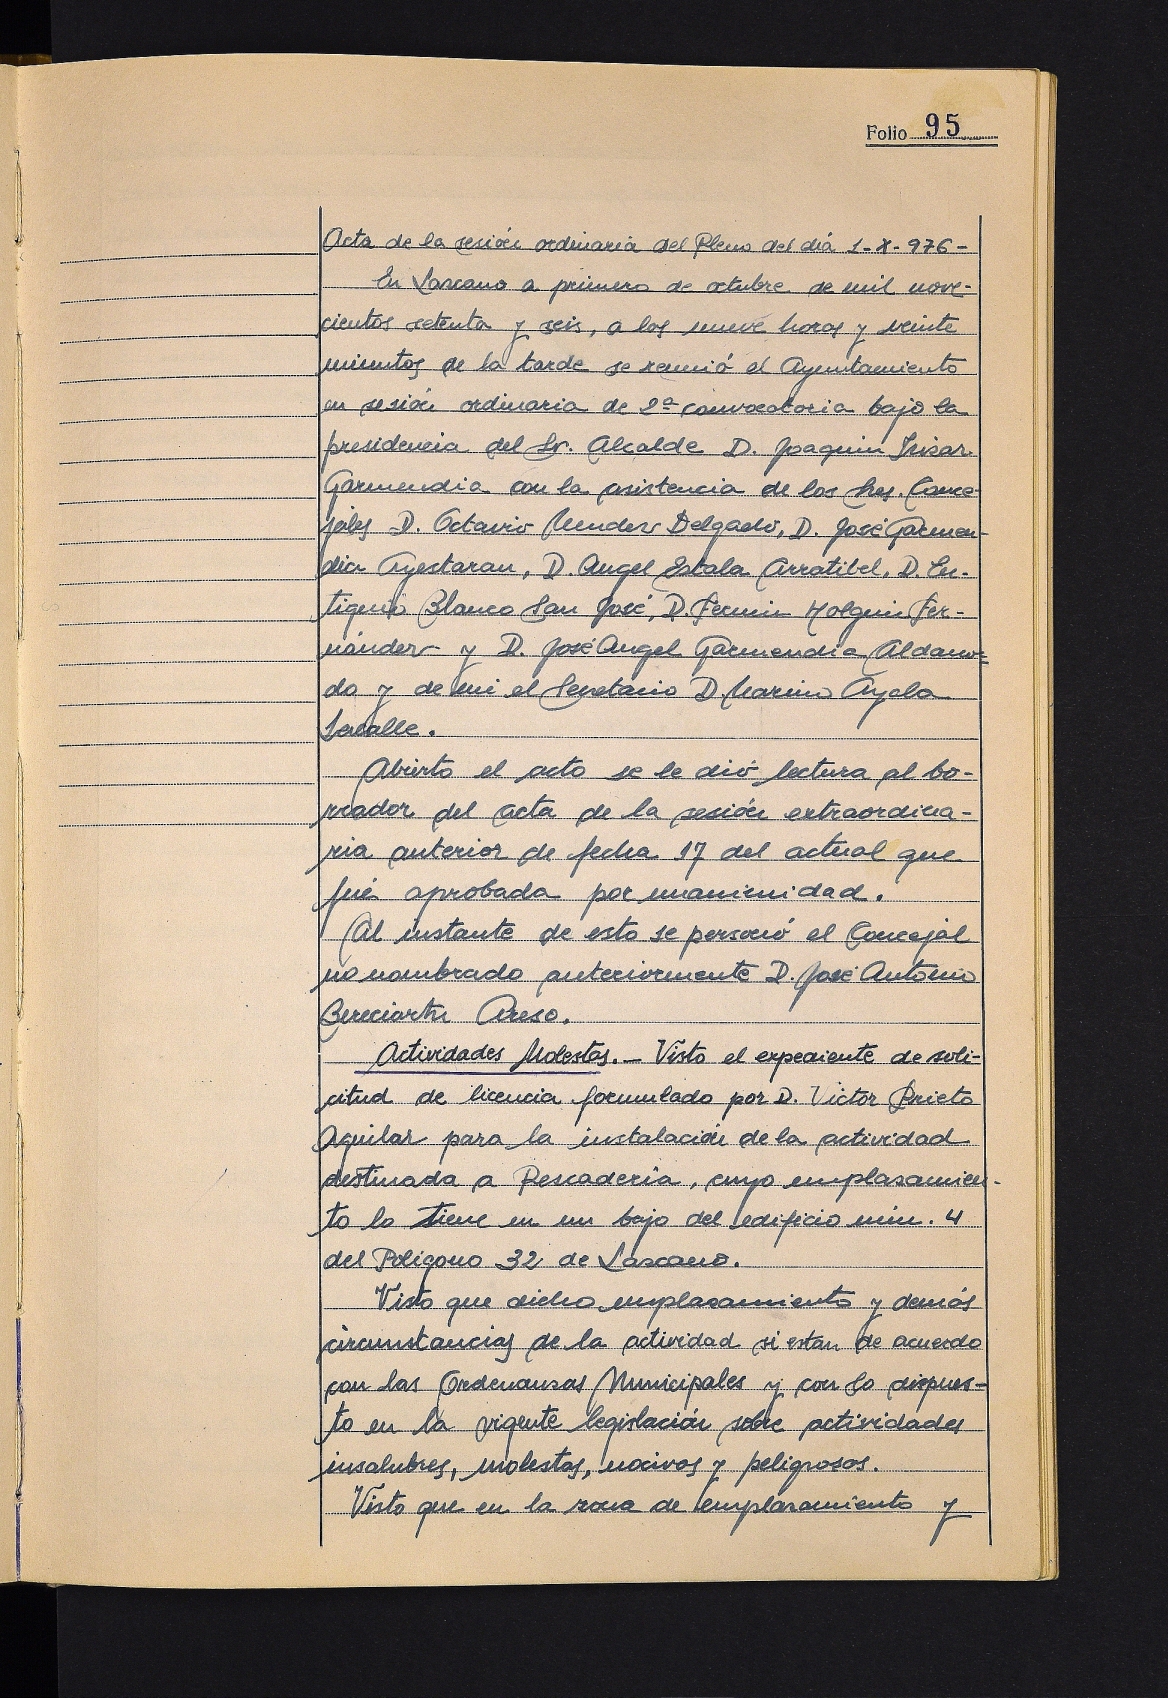 Folio 95
Acta de la sesión ordinaria del Pleno del dia 1-X-976-
En Lazcano a primero de octubre de mil nove-
cientos setenta y seis, a las nueve horas y veinte
minutos de la tarde se reunió el Ayuntamiento
en sesión ordinaria de 2ª convocatoria bajo la
presidencia del Sr. Alcalde D. Joaquin Irizar
Garmendia con la asistencia de los Sres. Conce-
jales D. Octavio Mendez Delgado, D. José Garmen-
dia Ayestaran, D. Angel Estala Arratibel, D. Eu-
tiquio Blanco San José, D. Fermin Holguin Fer-
nández y D. José Angel Garmendia Aldano-
do y de mi el Secretario D. Marino Ayala
Lacalle.
Abierto el acto se le dió lectura al bo-
rrador del acta de la sesión extraordina-
ria anterior de fecha 17 del actual que
fué aprobada por unanimidad.
Al instante de esto se personó el Concejal
no nombrado anteriormente D. José Antonio
Bereciartu Areso.
Actividades Molestas.- Visto el expediente de soli-
citud de licencia formulado por D. Victor Prieto
Aguilar para la instalación de la actividad
destinada a Pescaderia, cuyo emplazamien-
to lo tiene en un bajo del edificio núm. 4
del Poligono 32 de Lazcano.
Visto que dicho emplazamiento y demás
circunstancias de la actividad si estan de acuerdo
con las Ordenanzas Municipales y con lo dispues-
to en la vigente legislación sobre actividades
insalubres, molestas, nocivas y peligrosas.
Visto que en la zona de emplazamiento y